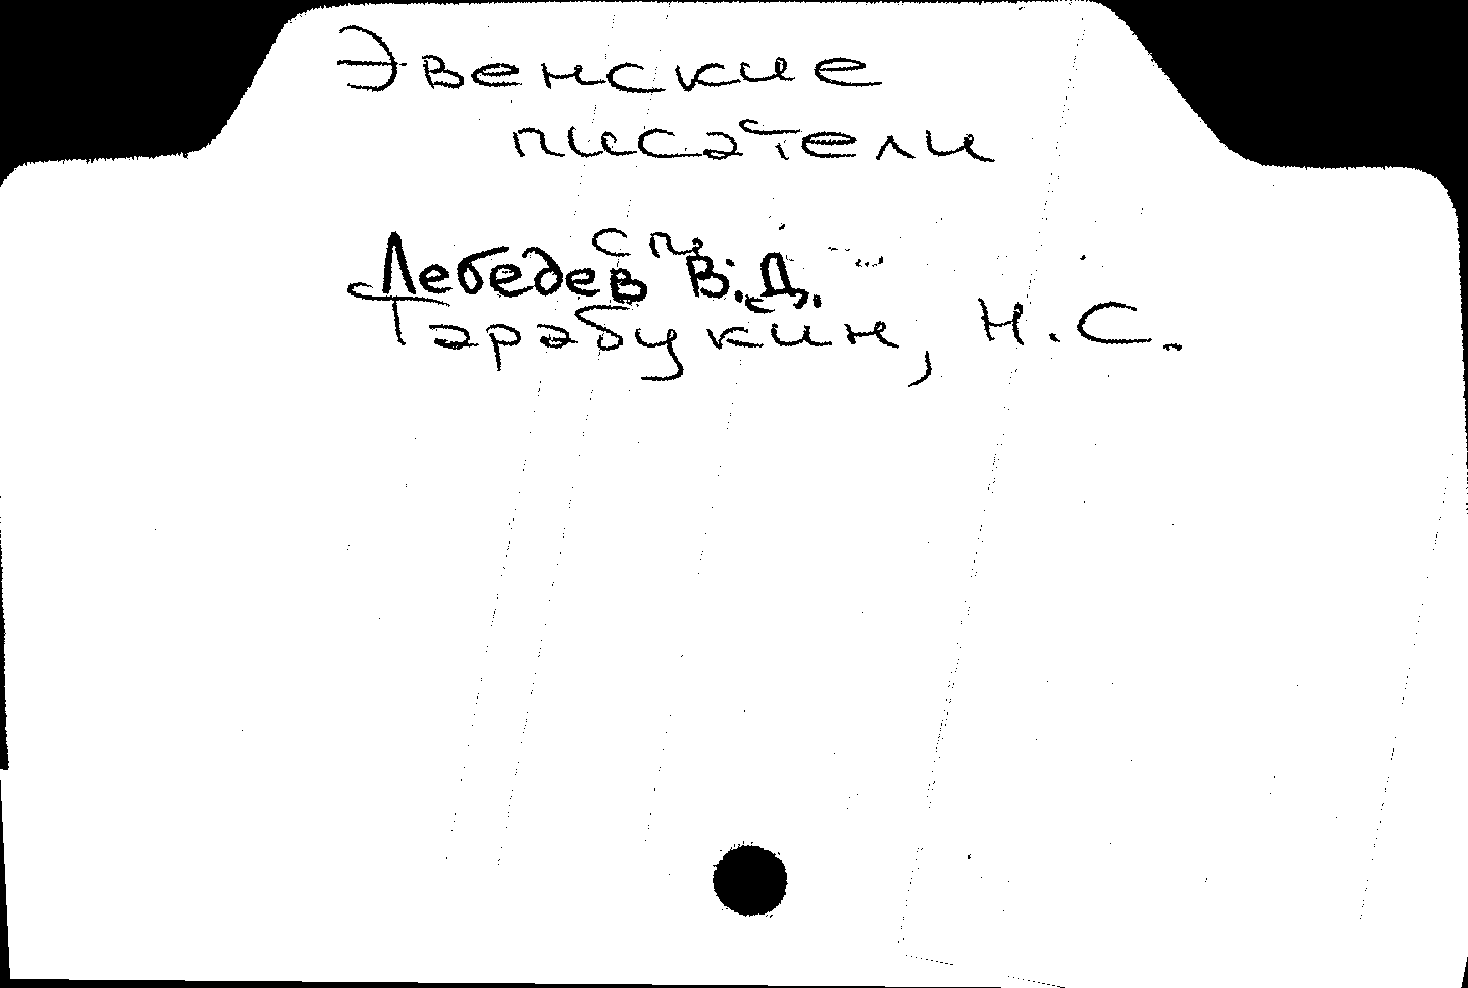 Эвенские
писатели
сп.
Лебедев В.Д.
Тарабукин, Н.С.